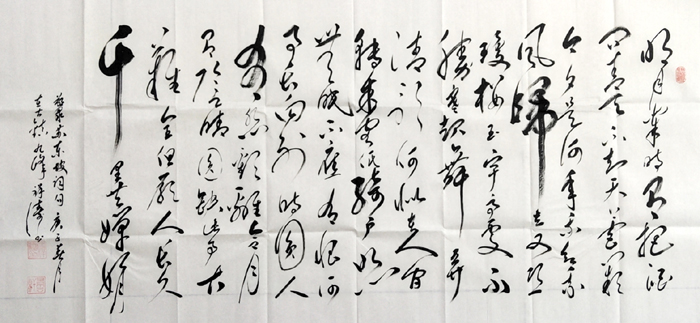 明月幾時有把酒
問青天不知天上宮闕
今夕是何年我欲乘
風歸去又恐
瓊樓玉宇高處不
勝寒起舞弄
清影何似在人間
轉朱閣低綺戶照
無眠不應有恨何
事長向別時圓人
有悲歡離合月
有陰晴圓缺此事古
難全但願人長久
千里共嬋娟
蘇東坡詞句庚子春月